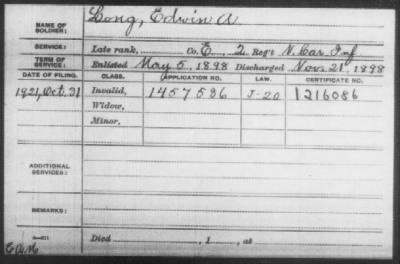 NAME OF SOLDIER: Long, Edwin A
SERVICE: Late rank, Co. E, 2 Reg't N. Car Inf
TERM OF SERVICE: Enlisted May 5, 1898 Discharged Nov. 21, 1898
DATE OF FILING. CLASS. APPLICATION NO. LAW. CERTIFICATE NO.
1921, Oct. 31 Invalid, 1457586 J-20 1216086
Widow,
Minor,
ADDITIONAL SERVICES:
REMARKS:
Died , 1 , at